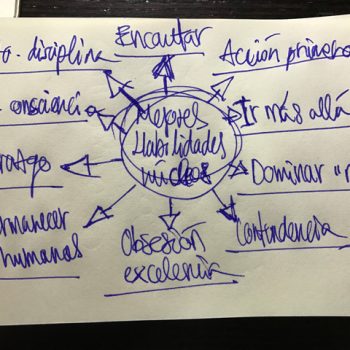 Encautar
o. disciplina
Acción primero
consciencia
Mejores
Habilidades
núcleos
Ir más allá
ratgo
Dominar "n
ermanecer
humanos
Obsesión
excelencia
Contundencia